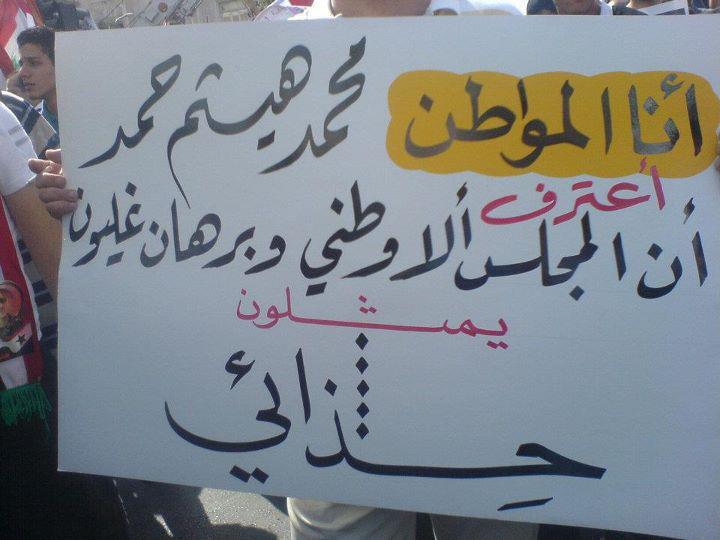 أنا المواطن محمد هيثم حمد
أعترف
أن المجلس ألا وطني وبرهان غليون
يمثلون
حذائي